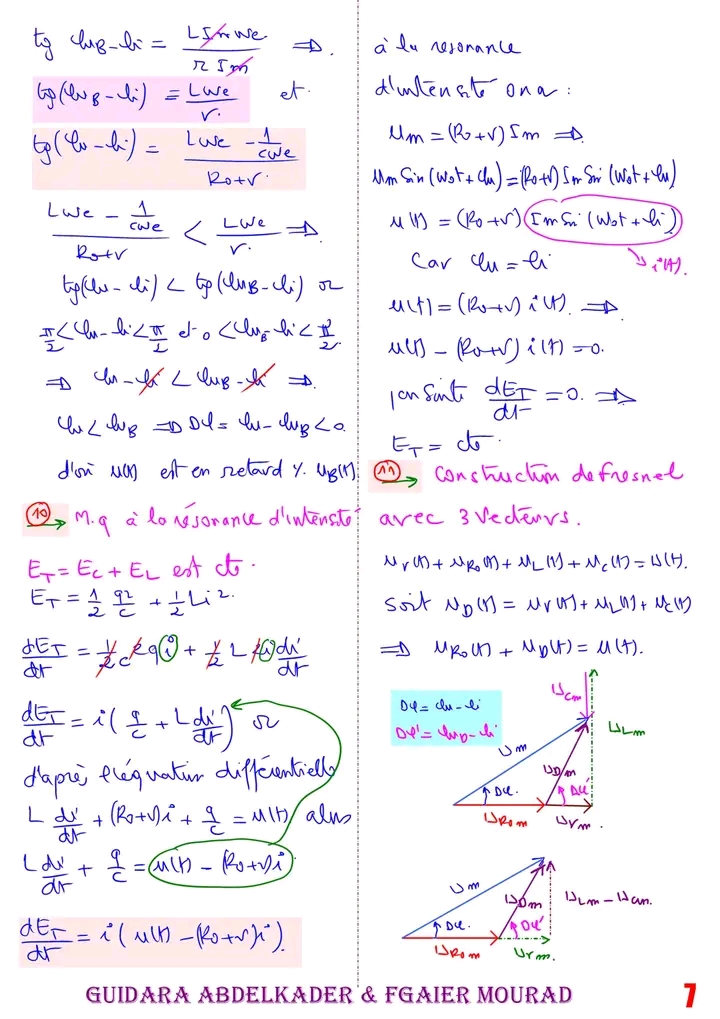 tg φuB - φi = LImωe / rIm ⇒
tg(φuB - φi) = Lωe / r et
tg(φu - φi) = (Lωe - 1/cωe) / (R0+r)
(Lωe - 1/cωe) / (R0+r) < Lωe / r ⇒
tg(φu - φi) < tg(φuB - φi) or
π/2 < φu - φi < π/2 et 0 < φuB - φi < π/2
⇒ φu - φi < φuB - φi ⇒
φu < φuB ⇒ Δφ = φu - φuB < 0
d'où u(t) est en retard % uB(t)
10 → M.q à la résonance d'intensité
ET = EC + EL est cte.
ET = 1/2 q²/c + 1/2 Li².
dET/dt = 1/2c 2qi + 1/2 L 2i di/dt
dET/dt = i(q/c + L di/dt) or
d'après l'équation différentielle
L di/dt + (R0+r)i + q/c = u(t) alors
L di/dt + q/c = u(t) - (R0+r)i
dET/dt = i(u(t) - (R0+r)i).
à la resonance
d'intensité on a :
Um = (R0+r) Im ⇒
Um Sin(ω0t + φu) = (R0+r) Im Sin(ω0t + φu)
u(t) = (R0+r) Im Sin(ω0t + φi)
Car φu = φi
i(t).
u(t) = (R0+r) i(t). ⇒
u(t) - (R0+r) i(t) = 0.
par suite dET/dt = 0. ⇒
ET = cte.
11 → Construction de fresnel
avec 3 Vecteurs.
ur(t) + uR0(t) + uL(t) + uc(t) = u(t).
soit uD(t) = ur(t) + uL(t) + uc(t)
⇒ uR0(t) + uD(t) = u(t).
Δφ = φu - φi
Δφ' = φuD - φi
Ucm
ULm
Um
UDm
Δφ
Δφ'
UR0m
Urm.
Um
UDm
ULm - Ucm.
Δφ
Δφ'
UR0m
Urm.
GUIDARA ABDELKADER & FGAIER MOURAD
7